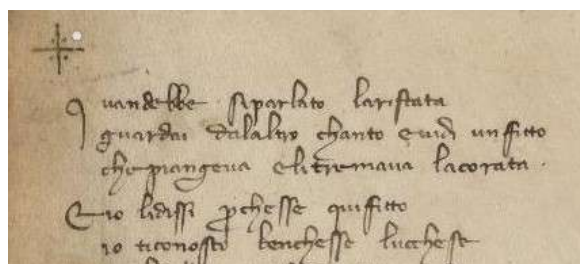 Quandebbe siparlato laristata
guardai dalaltro chanto e uidi un fitto
che piangeua e litremaua lacorata.
Et io lidissi pchesse qui fitto
io ticonosco benchesse lucchese